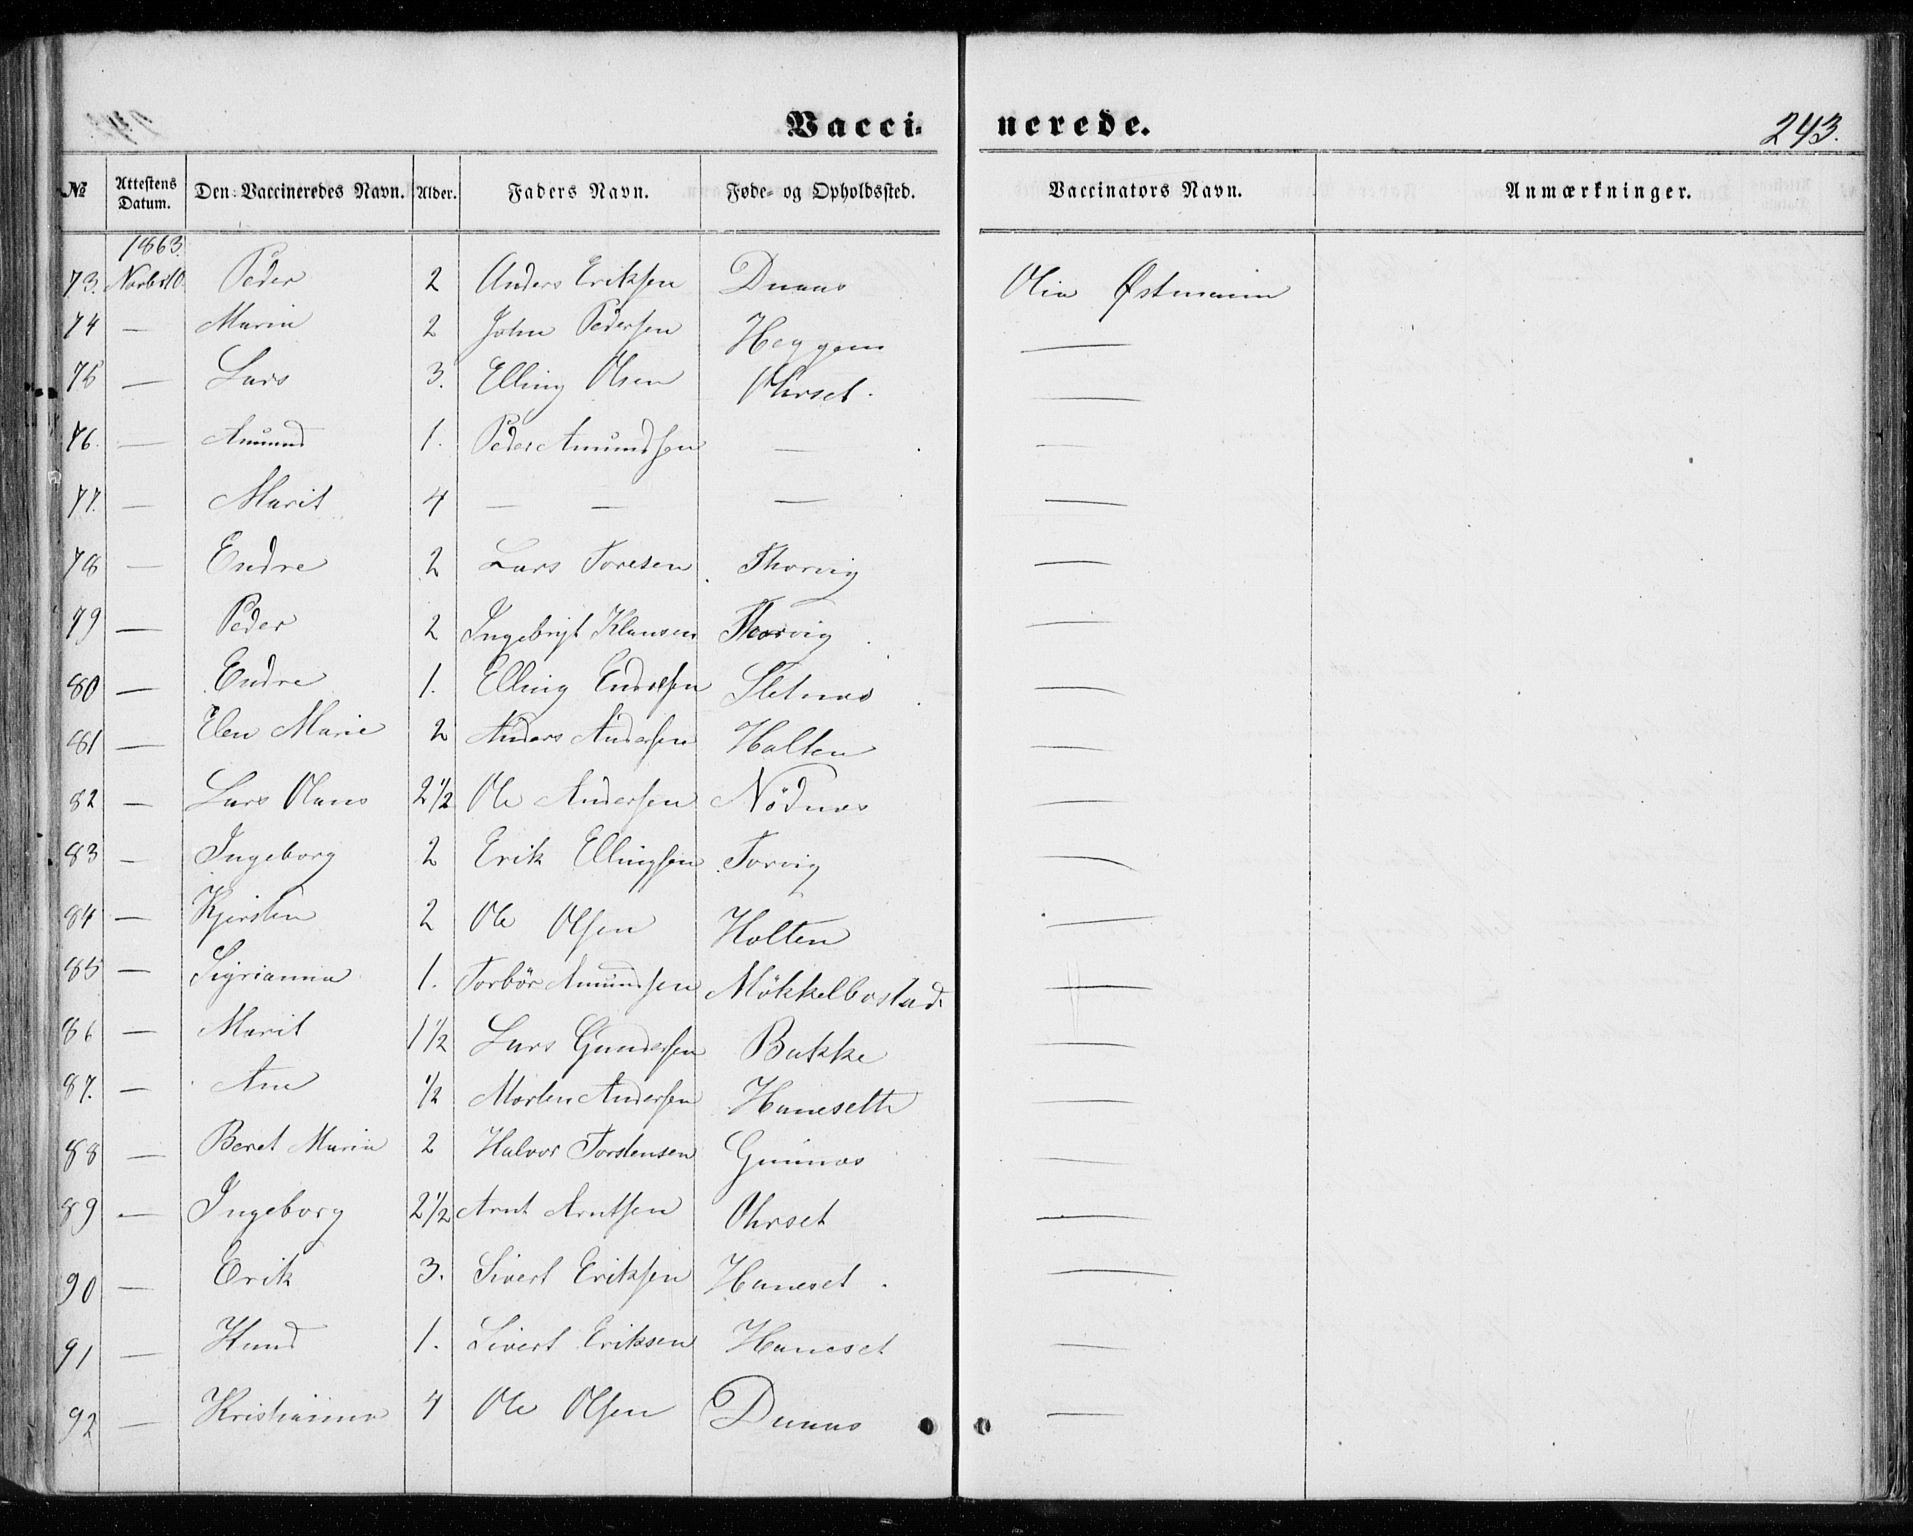 Vacci- nerede.
243.
№ Attestens Datum. Den Vaccineredes Navn. Alder. Faders Navn. Føde- og Opholdssted. Vaccinators Navn. Anmærkninger.
1863.
73. Novbr 10. Peder 2 Anders Eriksen Dunas Olia Østmann
74 — Marin 2 John Pedersen Heggem —
75 — Lars 3. Elling Olsen Ohrset. —
76. — Amund 1. Peder Amundsen — —
77. — Marit 4 — — — —
78 — Endre 2 Lars Toresen Thorvig —
79 — Peder 2 Ingebrigt Klausen Thorvig —
80 — Endre 1. Elling Endresen Sletnas —
81 — Elen Marie 2 Anders Andersen Holten —
82 — Lars Olaus 2 1/2 Ole Andersen Nödnas —
83 — Ingeborg 2 Erik Ellingsen Torvig —
84 — Kjersten 2 Ole Olsen Holten —
85 — Sigrianna 1. Torbör Amundsen Mökkelbostad. —
86 — Marit 1 1/2 Lars Gundersen Bakke —
87. — Ane 1/2 Morten Andersen Haneseth —
88 — Beret Maria 2 Halvor Torstensen Gunnas —
89 — Ingeborg 2 1/2 Arnt Arntsen Ohrset —
90 — Erik 3. Sivert Eriksen Haneset. —
91 — Knud 1. Sivert Eriksen Haneset —
92 — Kristianna 4 Ole Olsen Dunas —